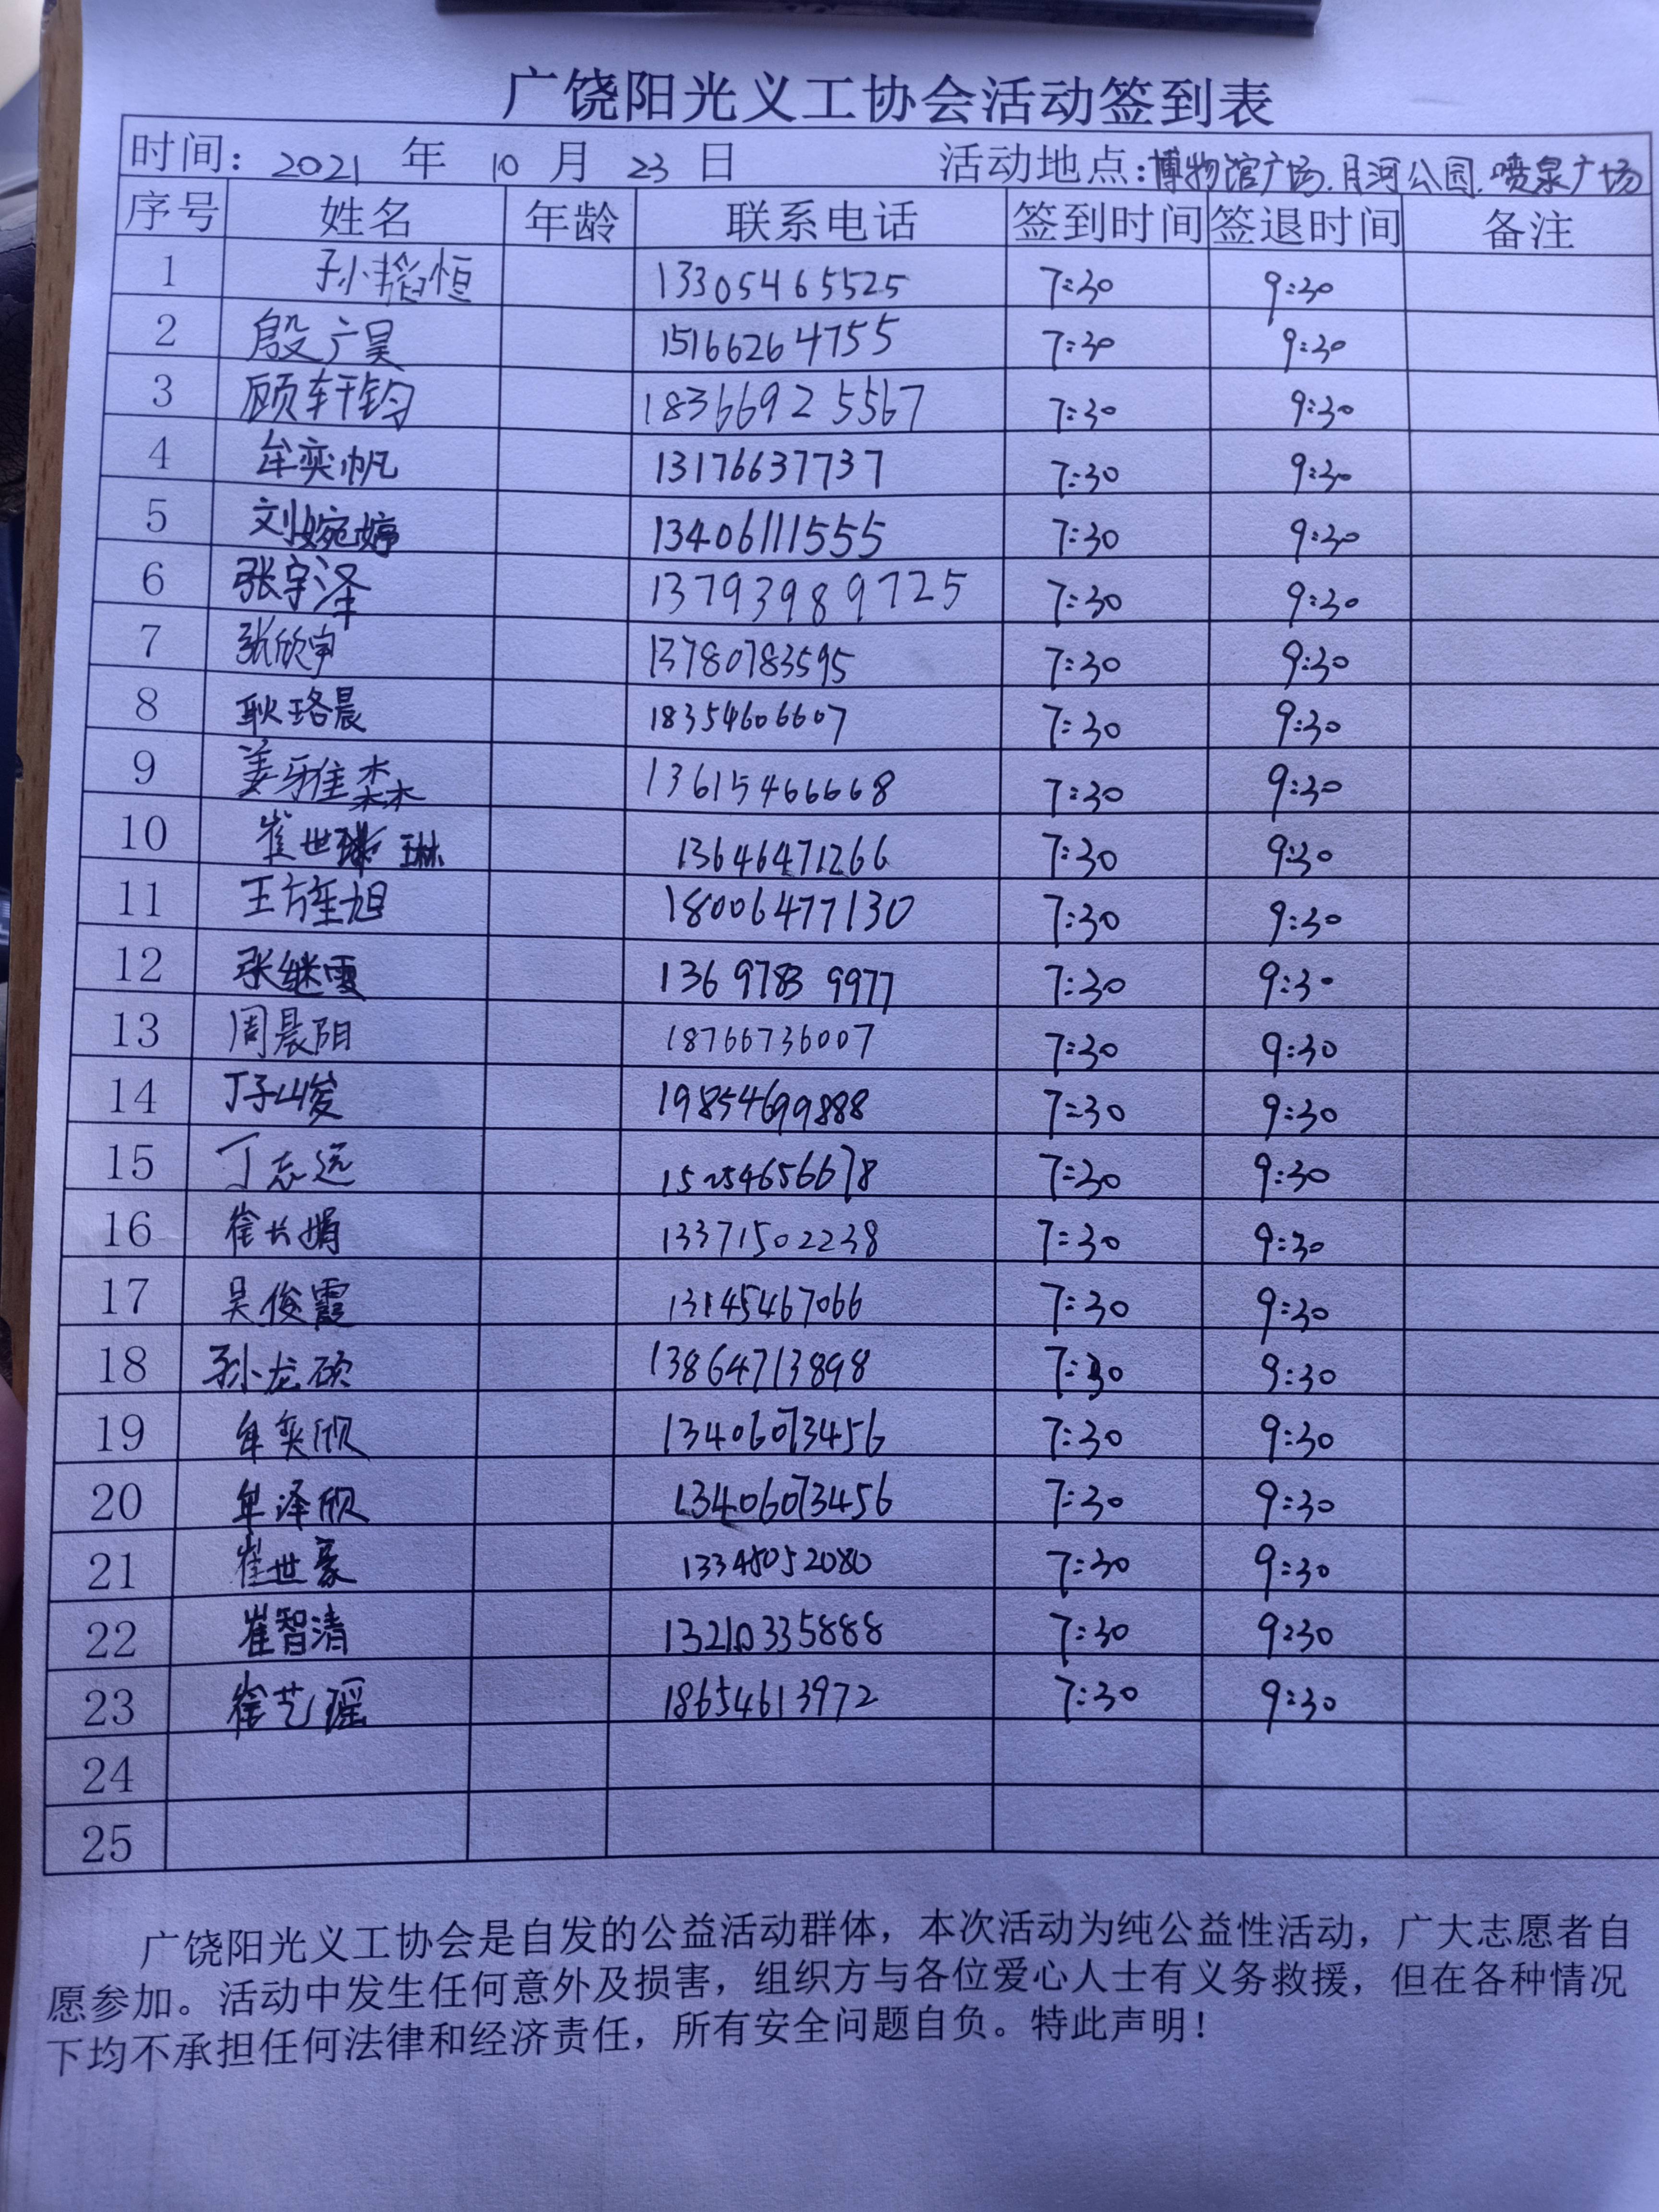 广饶阳光义工协会活动签到表
时间: 2021 年 10 月 23 日 活动地点:博物馆广场.月河公园.喷泉广场
序号 姓名 年龄 联系电话 签到时间 签退时间 备注
1 孙韬恒 13305465525 7:30 9:30
2 殷广昊 15166264755 7:30 9:30
3 顾轩钧 18366925567 7:30 9:30
4 牟奕帆 13176637737 7:30 9:30
5 刘婉婷 13406111555 7:30 9:30
6 张宇泽 13793989725 7:30 9:30
7 张欣宇 13780783595 7:30 9:30
8 耿珞晨 18354606607 7:30 9:30
9 姜雅森 13615466668 7:30 9:30
10 崔世琳 13646471266 7:30 9:30
11 王旭 18006477130 7:30 9:30
12 张继霞 13697839977 7:30 9:30
13 周晨阳 18766736007 7:30 9:30
14 丁子峻 19854699888 7:30 9:30
15 丁志远 15254656678 7:30 9:30
16 徐长娟 13371502238 7:30 9:30
17 吴俊霞 13145467066 7:30 9:30
18 孙龙硕 13864713898 7:30 9:30
19 牟奕欣 13406073456 7:30 9:30
20 牟泽欣 13406073456 7:30 9:30
21 崔世豪 13345052080 7:30 9:30
22 崔智清 13210335888 7:30 9:30
23 徐艺瑶 18654613972 7:30 9:30
24
25
广饶阳光义工协会是自发的公益活动群体，本次活动为纯公益性活动，广大志愿者自
愿参加。活动中发生任何意外及损害，组织方与各位爱心人士有义务救援，但在各种情况
下均不承担任何法律和经济责任，所有安全问题自负。特此声明！